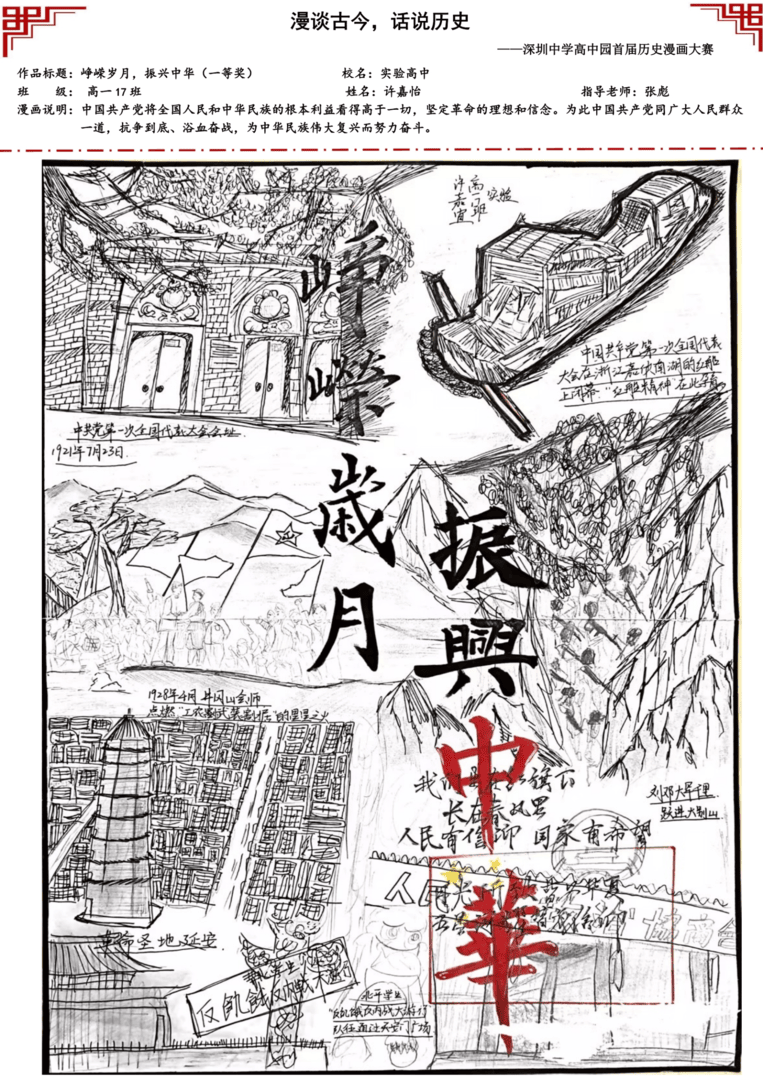 漫谈古今，话说历史
——深圳中学高中园首届历史漫画大赛
作品标题：峥嵘岁月，振兴中华（一等奖） 校名：实验高中
班 级： 高一17班 姓名：许嘉怡 指导老师：张彪
漫画说明：中国共产党将全国人民和中华民族的根本利益看得高于一切，坚定革命的理想和信念。为此中国共产党同广大人民群众
一道，抗争到底、浴血奋战，为中华民族伟大复兴而努力奋斗。
实验
峥嵘
歲月
振興
中華
中国共产党第一次全国代表
大会在浙江嘉兴南湖的红船
上闭幕"红船精神"在此孕育
中共党第一次全国代表大会会址
1921年7月23日.
1928年4月 井冈山会师
点燃"工农武装割据"的星星之火
刘邓大军千里
跃进大别山
我们 红旗下
长在春风里
人民有信仰 国家有希望
革命圣地延安
反飢餓反內戰
北平学生
"反饥饿反内战大游行"
队伍通过天安门广场